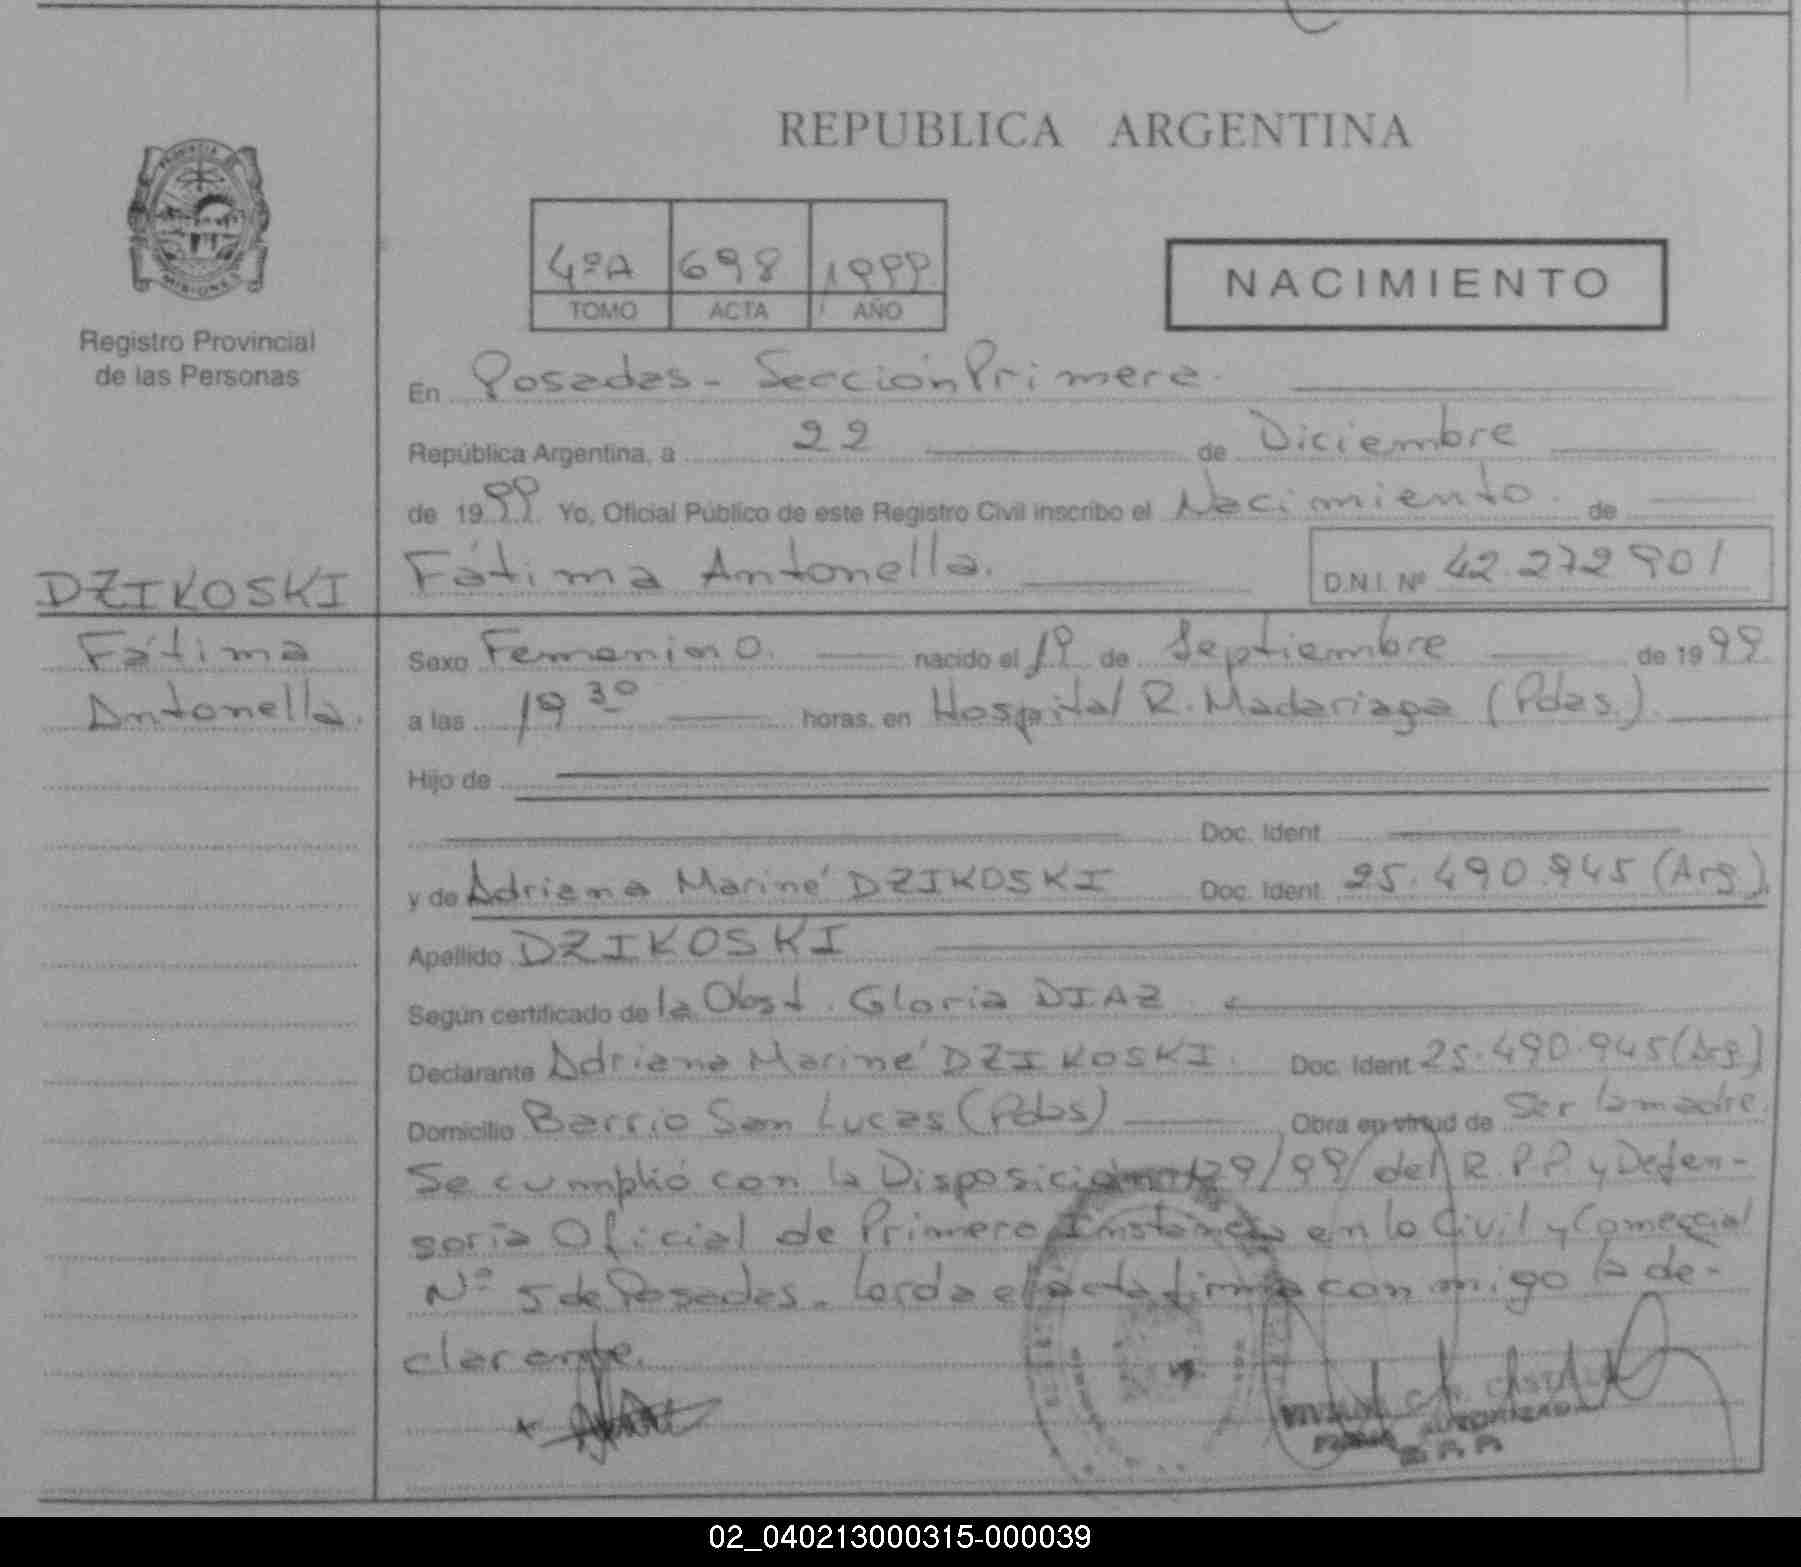 REPUBLICA ARGENTINA
PROVINCIA DE MISIONES
Registro Provincial
de las Personas
4ºA 698 1999
TOMO ACTA AÑO
NACIMIENTO
En Posadas - Sección Primera.
República Argentina, a 22 de Diciembre
de 1999 Yo, Oficial Público de este Registro Civil inscribo el Nacimiento de
DZIKOSKI
Fátima Antonella.
Fátima Antonella. D.N.I. Nº 42.272901
Sexo Femenino. nacido el 19 de Septiembre de 1999
a las 19 30 horas, en Hospital R. Madariaga (Pdas.).
Hijo de
Doc. Ident
y de Adriana Mariné DZIKOSKI Doc. Ident. 25.490.945 (Arg.).
Apellido DZIKOSKI
Según certificado de la Obst. Gloria DIAZ.
Declarante Adriana Mariné DZIKOSKI. Doc. Ident 25.490.945 (Arg.)
Domicilio Barrio San Lucas (Pdas) Obra en virtud de Ser la madre.
Se cumplió con la Disposición 129/99/ del R.P.P. y Defen-
soría Oficial de Primera Instancia en lo Civil y Comercial
Nº 5 de Posadas. Leída el acta firma con migo la de-
clarante.
AUTORIZADA
R.P.P.
02_040213000315-000039